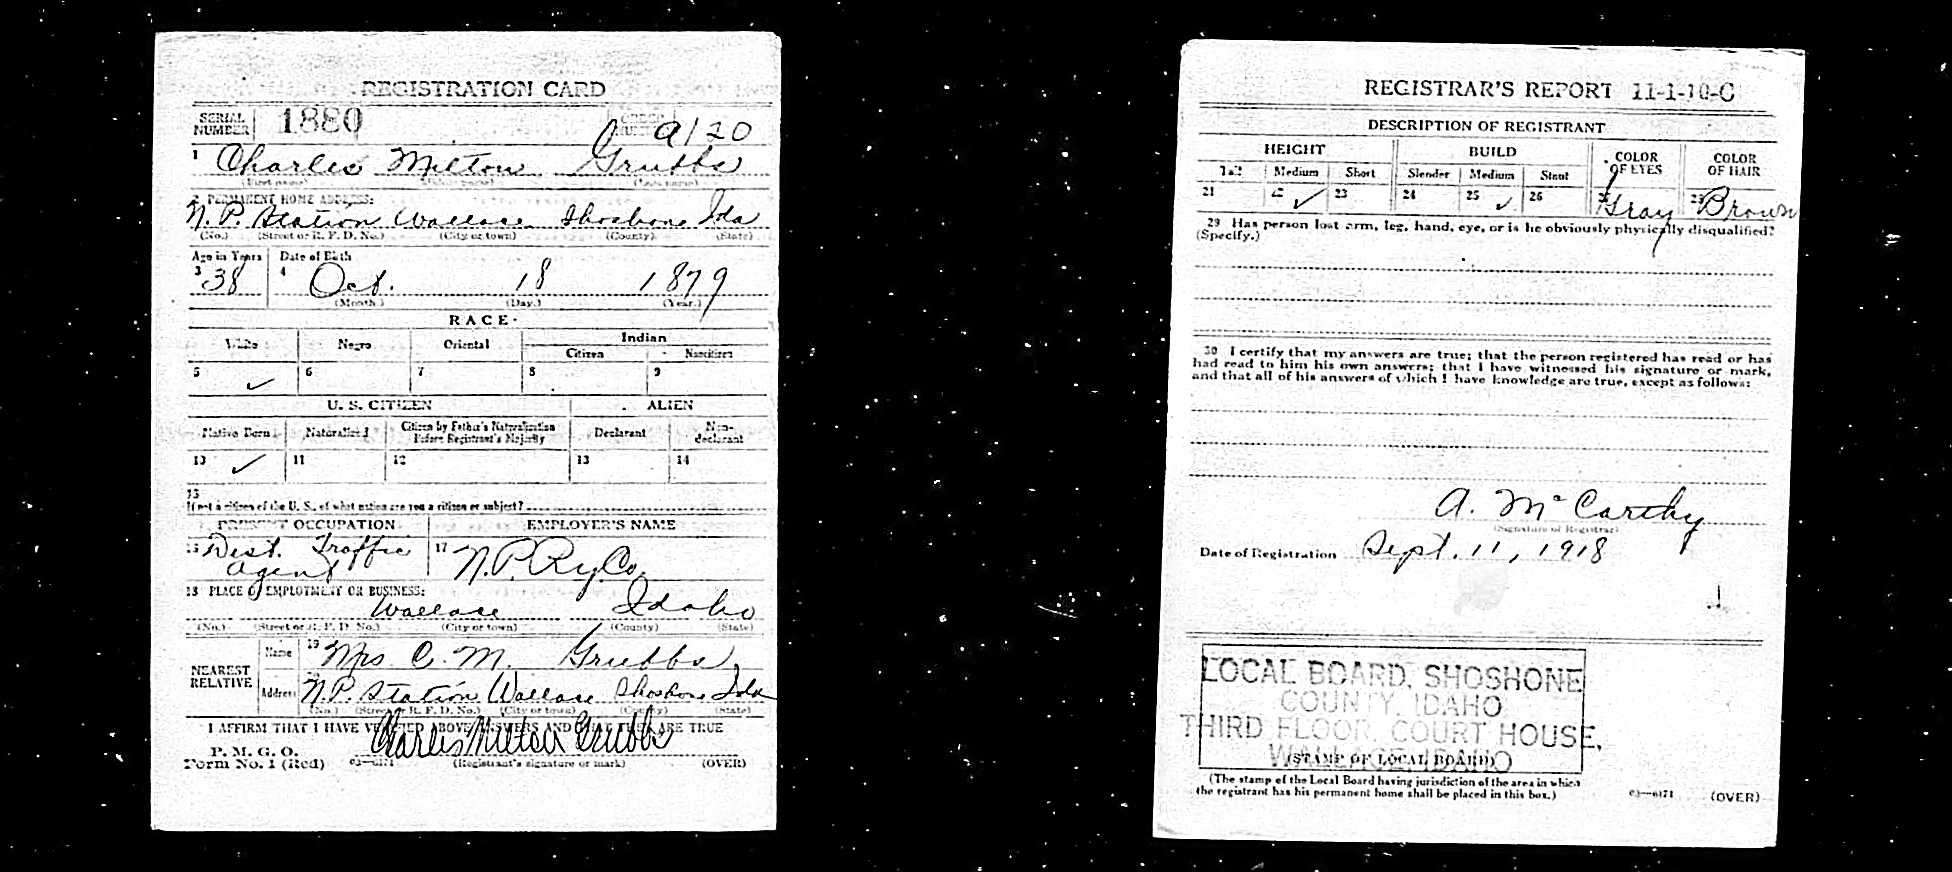 REGISTRATION CARD
SERIAL NUMBER 1880 ORDER NUMBER A120
1 Charles Milton Grubbs
(First name) (Middle name) (Last name)
2 PERMANENT HOME ADDRESS:
N.P. Station Wallace Shoshone Ida
(No.) (Street or R. F. D. No.) (City or town) (County) (State)
Age in Years Date of Birth
3 38 4 Oct. 18 1879
(Month.) (Day.) (Year.)
RACE
White Negro Oriental Indian
Citizen Noncitizen
5 ✓ 6 7 8 9
U. S. CITIZEN ALIEN
Native Born Naturalized Citizen by Father's Naturalization Before Registrant's Majority Declarant Non-declarant
10 ✓ 11 12 13 14
15
If not a citizen of the U. S., of what nation are you a citizen or subject?
PRESENT OCCUPATION EMPLOYER'S NAME
16 Dist. Traffic 17 N.P. Ry Co.
agent
18 PLACE OF EMPLOYMENT OR BUSINESS:
Wallace Idaho
(No.) (Street or R. F. D. No.) (City or town) (County) (State)
NEAREST RELATIVE
Name 19 Mrs. C. M. Grubbs
Address N.P. Station Wallace Shoshone Ida
(No.) (Street or R. F. D. No.) (City or town) (County) (State)
I AFFIRM THAT I HAVE VERIFIED ABOVE ANSWERS AND THAT THEY ARE TRUE
P. M. G. O.
Form No. 1 (Red) 03—6171 Charles Milton Grubbs
(Registrant's signature or mark) (OVER)
REGISTRAR'S REPORT 11-1-10-C
DESCRIPTION OF REGISTRANT
HEIGHT BUILD COLOR OF EYES COLOR OF HAIR
Tall Medium Short Slender Medium Stout
21 22 ✓ 23 24 25 ✓ 26 27 Gray 28 Brown
29 Has person lost arm, leg, hand, eye, or is he obviously physically disqualified?
(Specify.)
30 I certify that my answers are true; that the person registered has read or has
had read to him his own answers; that I have witnessed his signature or mark,
and that all of his answers of which I have knowledge are true, except as follows:
A. McCarthy
(Signature of Registrar)
Date of Registration Sept. 11, 1918
LOCAL BOARD, SHOSHONE
COUNTY, IDAHO
THIRD FLOOR, COURT HOUSE,
WALLACE, IDAHO
(STAMP OF LOCAL BOARD)
(The stamp of the Local Board having jurisdiction of the area in which
the registrant has his permanent home shall be placed in this box.)
03—6171 (OVER)